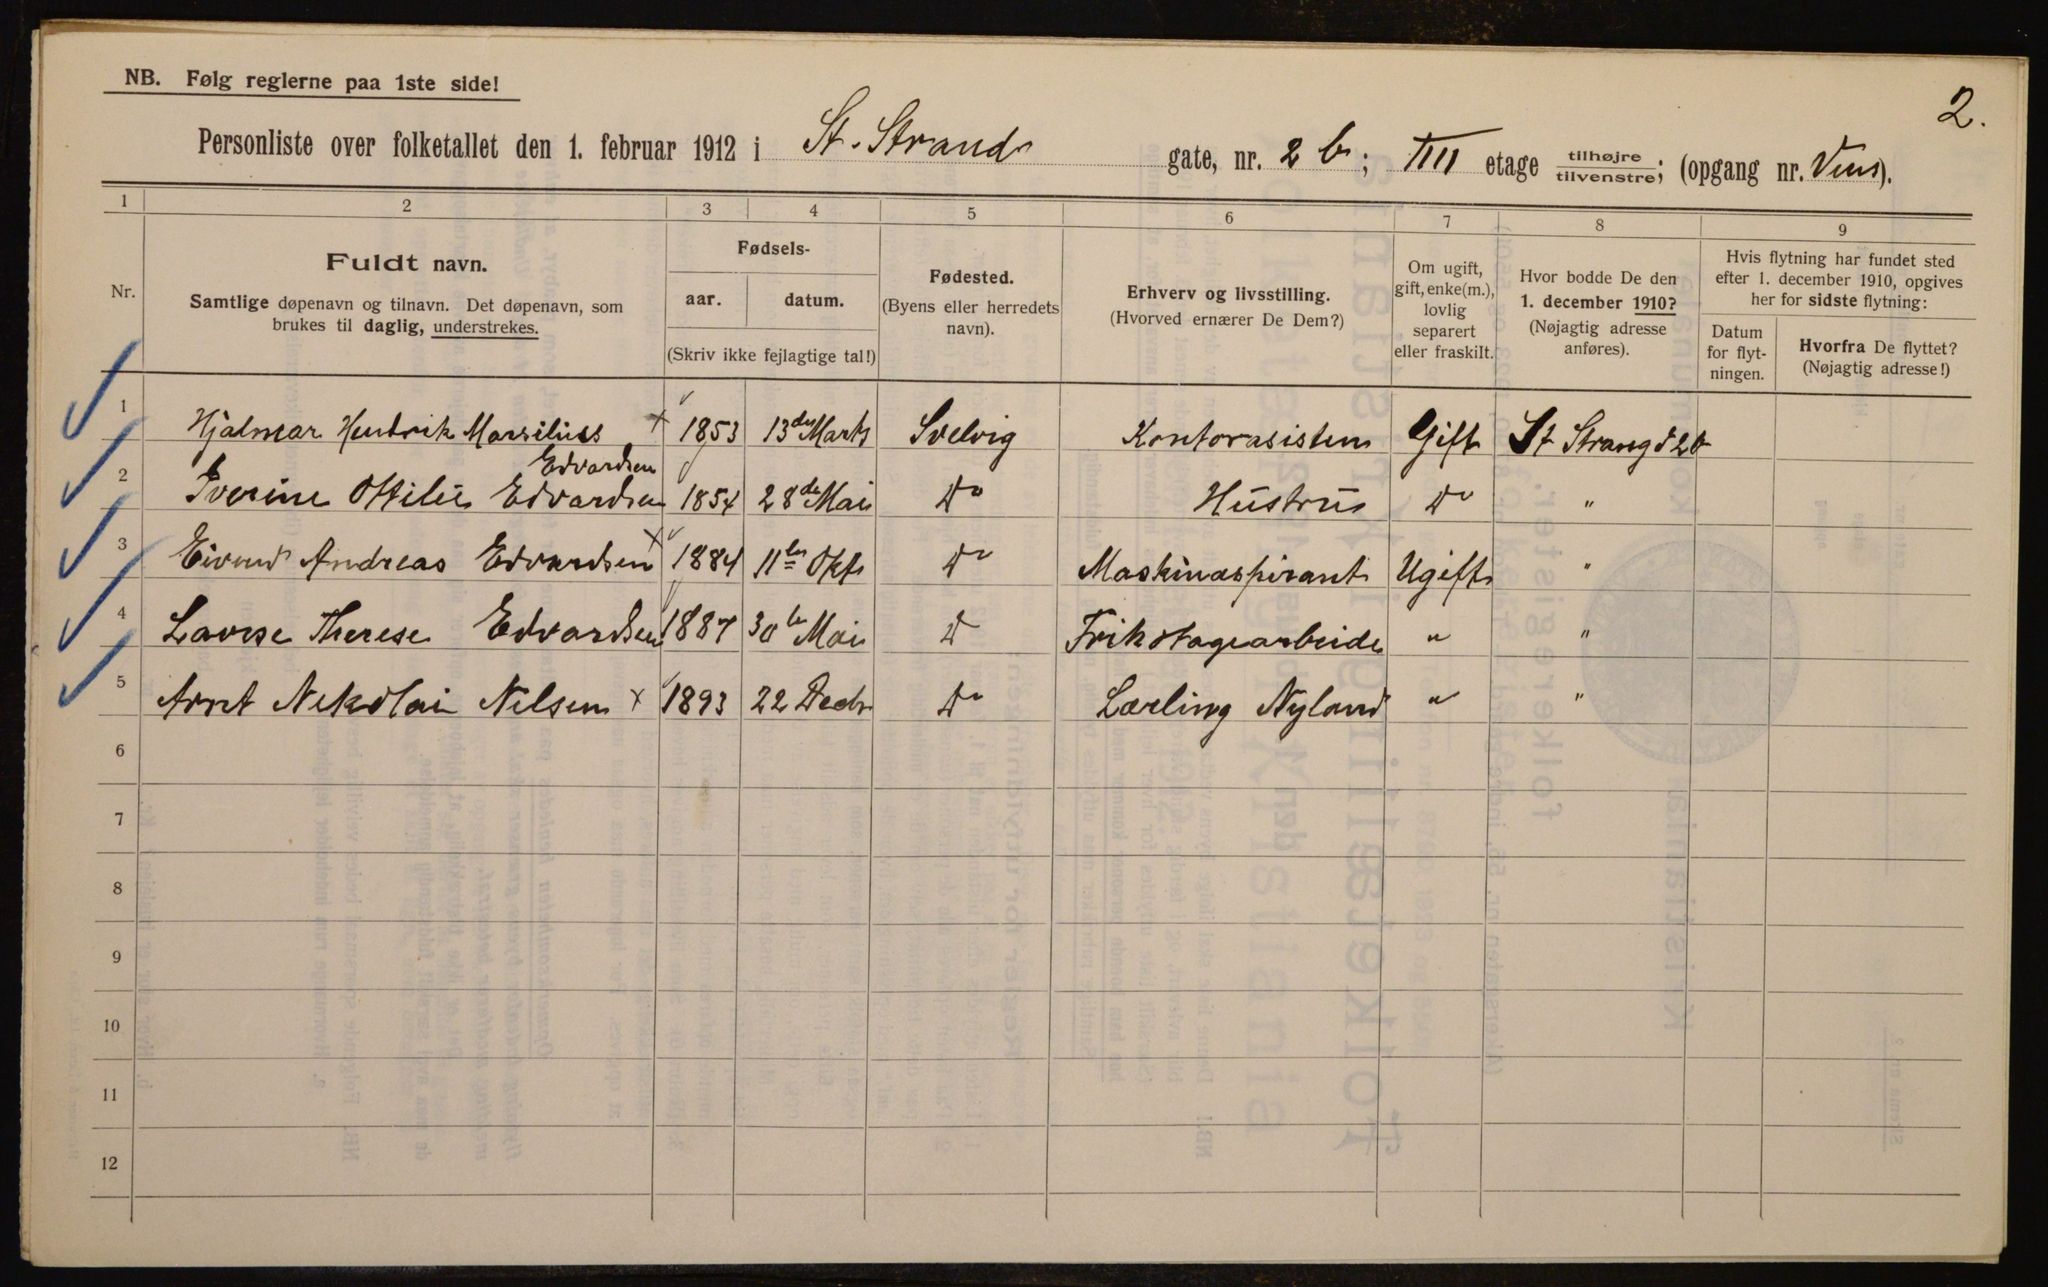 NB. Følg reglerne paa 1ste side!
2.
Personliste over folketallet den 1. februar 1912 i St. Strand gate, nr. 2 b; III etage tilhøjre tilvenstre; (opgang nr. ).
1 2 3 4 5 6 7 8 9
Nr.
Fuldt navn.
Samtlige døpenavn og tilnavn. Det døpenavn, som
brukes til daglig, understrekes.
Fødsels-
aar. datum.
(Skriv ikke fejlagtige tal!)
Fødested.
(Byens eller herredets
navn).
Erhverv og livsstilling.
(Hvorved ernærer De Dem?)
Om ugift,
gift, enke(m.),
lovlig
separert
eller fraskilt.
Hvor bodde De den
1. december 1910?
(Nøjagtig adresse
anføres).
Hvis flytning har fundet sted
efter 1. december 1910, opgives
her for sidste flytning:
Datum
for flyt-
ningen.
Hvorfra De flyttet?
(Nøjagtig adresse!)
1 Hjalmar Hendrik Marsilius Edvardsen 1853 13de Marts Svelvig Kontorasisten Gift St Strangd 2 b
2 Iverine Ottilie Edvardsen 1854 28de Mai Do Hustru Do "
3 Eivind Andreas Edvardsen 1884 11te Okt Do Maskinaspirant Ugift "
4 Lovise Therese Edvardsen 1887 30te Mai D Trikotagearbeide " "
5 Arnt Nikolai Nilsen x 1893 22 Decbr Do Lærling Nyland " "
6
7
8
9
10
11
12